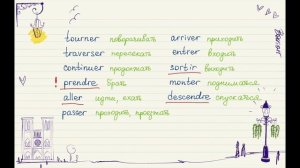 tourner поворачивать
traverser пересекать
continuer продолжать
! prendre брать
aller идти, ехать
passer проходить, проезжать
arriver приходить
entrer входить
sortir выходить
monter подниматься
descendre спускаться